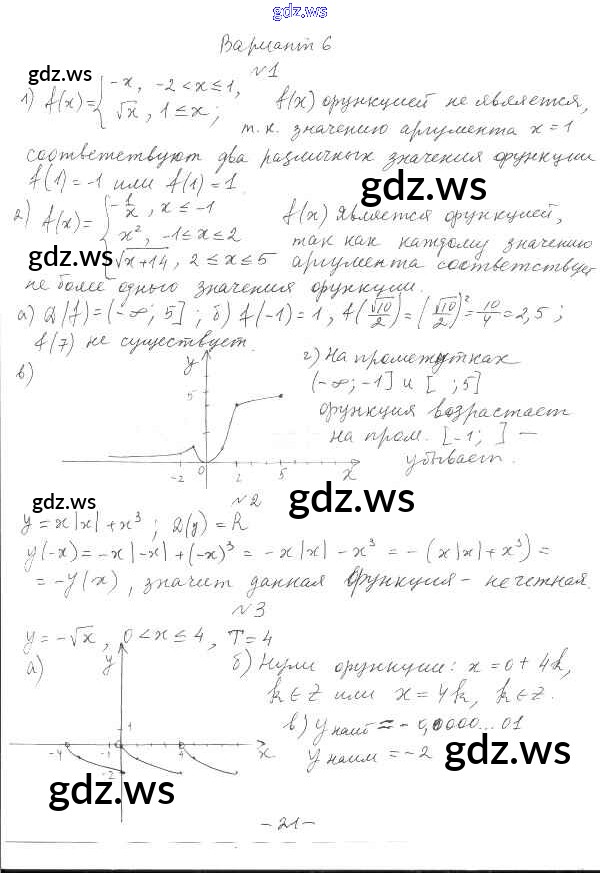 gdz.ws
Вариант 6
№1
gdz.ws
1) f(x)={-x, -2<x≤1,
√x, 1≤x;
f(x) функцией не является,
т.к. значению аргумента x=1
соответствуют два различных значения функции
f(1)=-1 или f(1)=1.
gdz.ws
2) f(x)={-1/x, x≤-1
x², -1≤x≤2
√x+14, 2≤x≤5
f(x) является функцией,
так как каждому значению
gdz.ws
аргумента соответствует
не более одного значения функции.
а) D(f)=(-∞; 5]; б) f(-1)=1, f(√10/2)=(√10/2)²=10/4=2,5;
f(7) не существует.
в)
y
5
-2 0 2 5 x
г) На промежутках
(-∞;-1] и [ ;5]
функция возрастает
на пром. [-1; ] —
убывает.
gdz.ws
gdz.ws
№2
y=x|x|+x³; D(y)=R
y(-x)=-x|-x|+(-x)³=-x|x|-x³=-(x|x|+x³)=
=-y(x), значит данная функция - нечетная.
№3
gdz.ws
gdz.ws
y=-√x, 0<x≤4, T=4
а)
y
1
-4 -1 4 x
-2
б) Нули функции: x=0+4k,
k∈Z или x=4k, k∈Z.
в) y наиб ≈-0,0000...01
y наим =-2
gdz.ws
gdz.ws
-21-